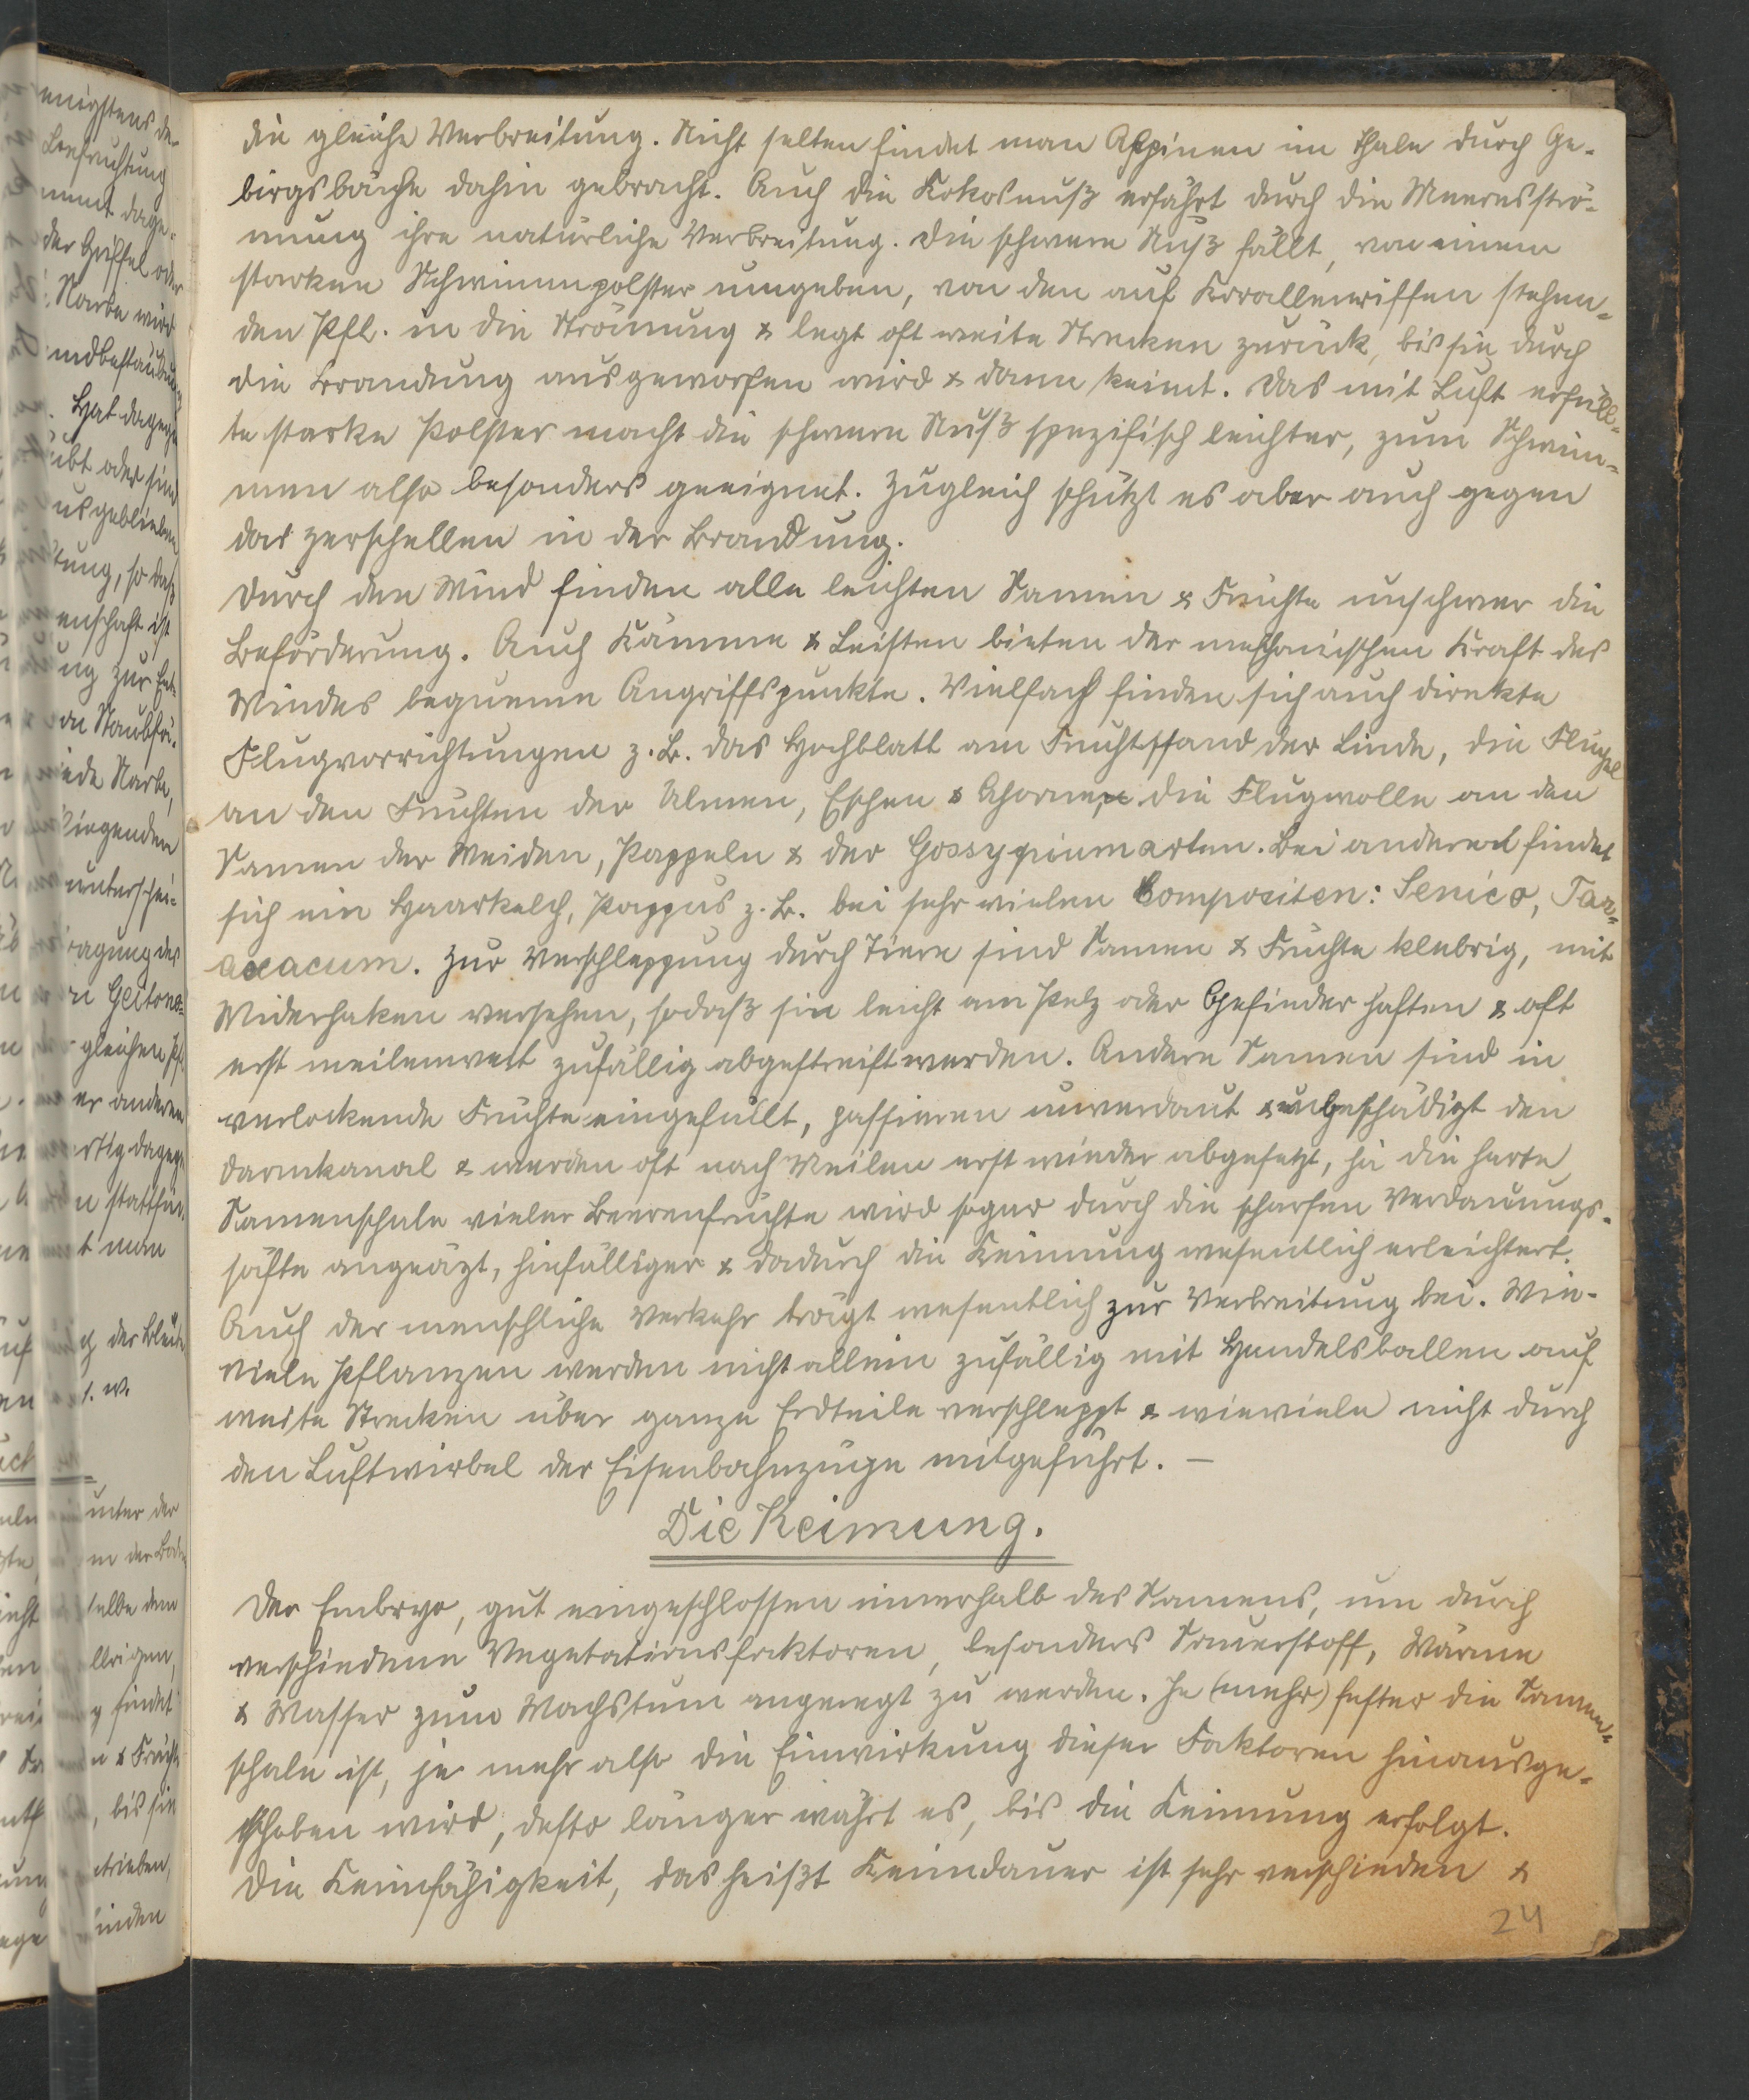 die gleiche Verbreitung. Nicht selten findet man Alpinen im Thale durch Ge-
birgsbäche dahin gebracht. Auch die Kokosnuß erfährt durch die Meeresströ-
mung ihre natürliche Verbreitung. Die schwere Nuß fällt, von einem
starken Schwimmpolster umgeben, von den auf Korallenriffen stehen-
den Pfl. in die Strömung & legt oft weite Strecken zurück, bis sie durch
die Brandung ausgeworfen wird & dann keimt. Das mit Luft erfüll-
te starke Polster macht die schwere Nuß spezifisch leichter, zum Schwim-
men also besonders geeignet. Zugleich schützt es aber auch gegen
das Zerschellen in der Brandung.
Durch den Wind finden alle leichten Samen & Früchte unschwer die
Beförderung. Auch Kämme & Leisten bieten der mechanischen Kraft des
Windes bequeme Angriffspunkte. Vielfach finden sich auch direkte
Flugvorrichtungen z. B. das Hochblatt am Fruchtstand der Linde, die Flügel
an den Früchten der Ulmen, Eschen & Ahorne, die Flugwolle an den
Samen der Weiden, Pappeln & der Gossypiumarten. Bei anderen findet
sich ein Haarkelch, Pappus z. B. bei sehr vielen Compositen: Senico, Tar-
axacum. Zur Verschleppung durch Tiere sind Samen & Früchte klebrig, mit
Widerhaken versehen, sodaß sie leicht am Pelz oder Gefieder haften & oft
erst meilenweit zufällig abgestreift werden. Andere Samen sind in
verlockende Früchte eingehüllt, passieren unverdaut & unbeschädigt den
Darmkanal & werden oft nach Meilen erst wieder abgesetzt, ja die harte
Samenschale vieler Beerenfrüchte wird sogar durch die scharfen Verdauungs-
säfte angeäzt, hinfälliger & dadurch die Keimung wesentlich erleichtert.
Auch der menschliche Verkehr trägt wesentlich zur Verbreitung bei. Wie-
viele Pflanzen werden nicht allein zufällig mit Handelsballen auf
weite Strecken über ganze Erdteile verschleppt & wieviele nicht durch
den Luftwirbel der Eisenbahnzüge mitgeführt. —
Die Keimung.
Der Embryo, gut eingeschlossen innerhalb des Samens, um durch
verschiedene Vegetationsfaktoren, besonders Sauerstoff, Wärme
& Wasser zum Wachstum angeregt zu werden. Je (mehr) fester die Samen-
schale ist, je mehr also die Einwirkung dieser Faktoren hinausge-
schoben wird, desto länger währt es, bis die Keimung erfolgt.
Die Keimfähigkeit, das heißt Keimdauer ist sehr verschieden &
24